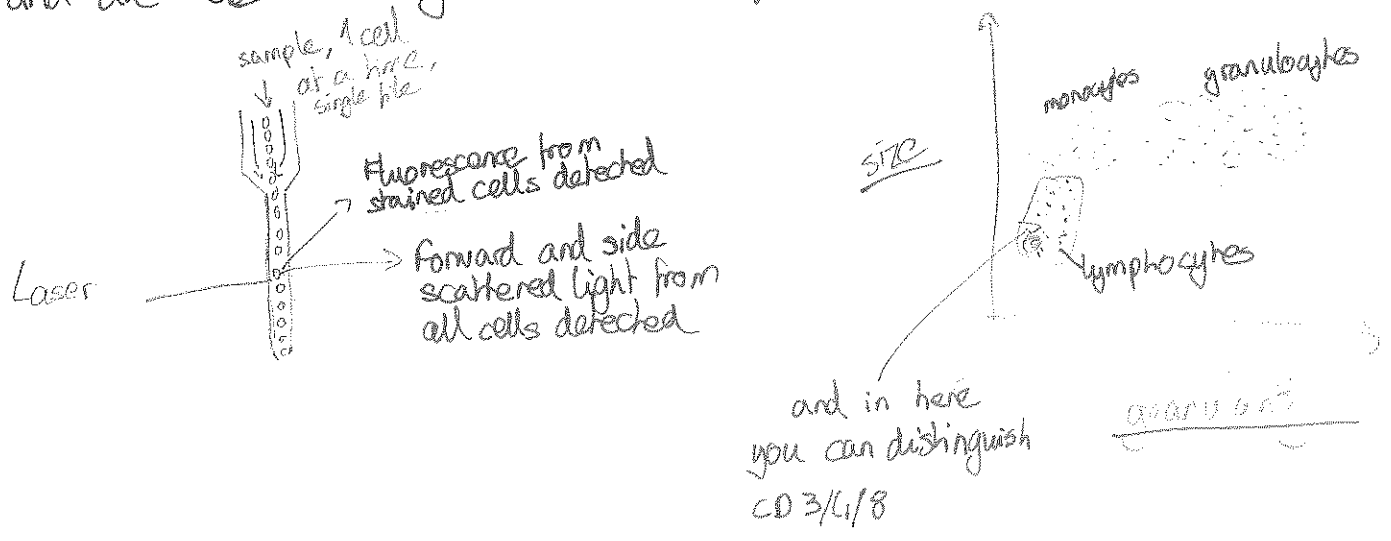 and are
sample, 1 cell
at a time,
single file
Fluorescence from
stained cells detected
Laser
forward and side
scattered light from
all cells detected
size
monocytes
granulocytes
lymphocytes
and in here
you can distinguish
CD3/4/8